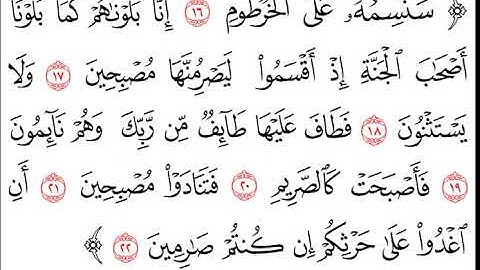 ﴿ سَنَسِمُهُۥ عَلَى ٱلْخُرْطُومِ ١٦ إِنَّا بَلَوْنَٰهُمْ كَمَا بَلَوْنَآ
أَصْحَٰبَ ٱلْجَنَّةِ إِذْ أَقْسَمُوا۟ لَيَصْرِمُنَّهَا مُصْبِحِينَ ١٧ وَلَا
يَسْتَثْنُونَ ١٨ فَطَافَ عَلَيْهَا طَآئِفٌ مِّن رَّبِّكَ وَهُمْ نَآئِمُونَ
١٩ فَأَصْبَحَتْ كَٱلصَّرِيمِ ٢٠ فَتَنَادَوْا۟ مُصْبِحِينَ ٢١ أَنِ
ٱغْدُوا۟ عَلَىٰ حَرْثِكُمْ إِن كُنتُمْ صَٰرِمِينَ ٢٢ ﴾